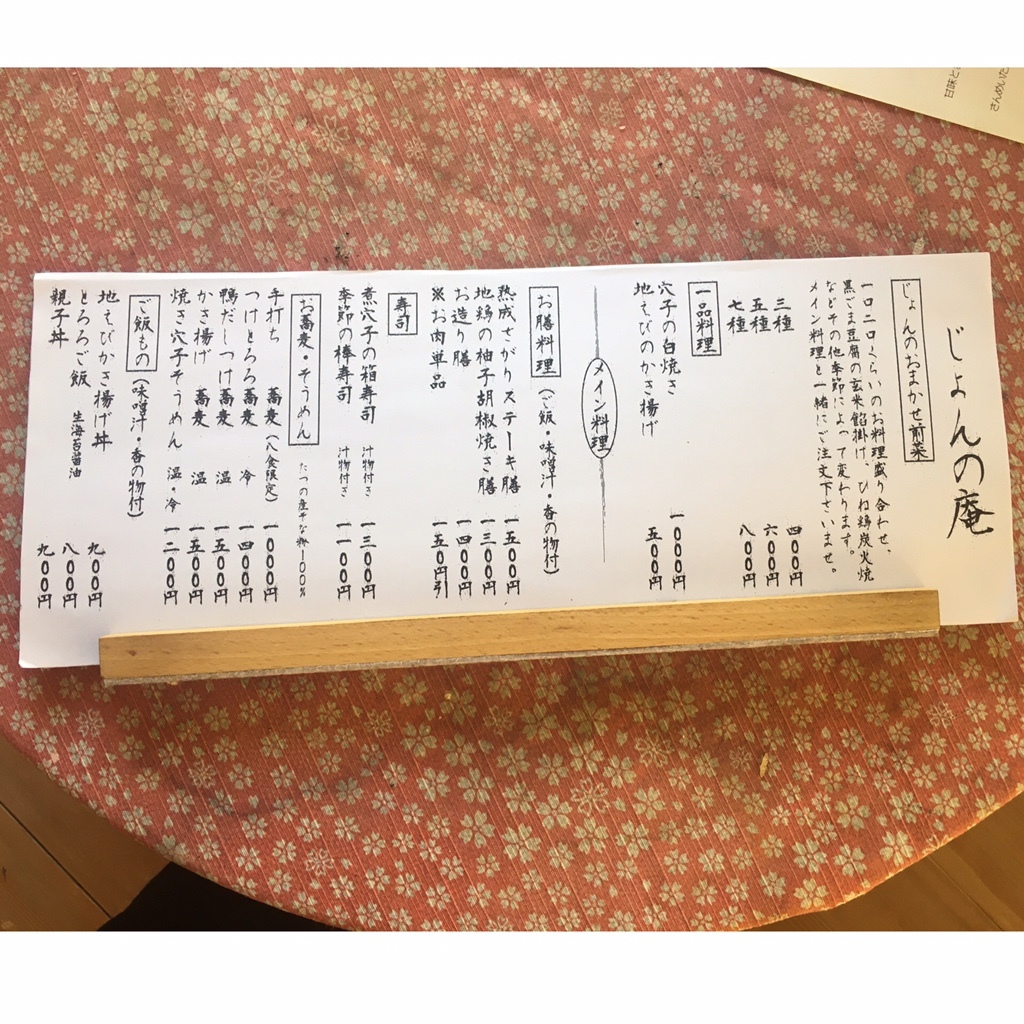 じょんの庵
じょんのおまかせ前菜
一口二口くらいのお料理盛り合わせ、
黒ごま豆腐の玄米餡掛け、ひね鶏炭火焼
などその他季節によって変わります。
メイン料理と一緒にご注文下さいませ。
三種 四〇〇円
五種 六〇〇円
七種 八〇〇円
一品料理
穴子の白焼き 一〇〇〇円
地えびのかき揚げ 五〇〇円
メイン料理
お膳料理(ご飯・味噌汁・香の物付)
熟成さがりステーキ膳 一五〇〇円
地鶏の柚子胡椒焼き膳 一三〇〇円
お造り膳 一四〇〇円
※お肉単品 一五〇円引
寿司
煮穴子の箱寿司 汁物付き 一三〇〇円
季節の棒寿司 汁物付き 一一〇〇円
お蕎麦・そうめん
たつの産そば粉100%
手打ち 蕎麦(八食限定) 一〇〇〇円
つけとろろ蕎麦 冷 一四〇〇円
鴨だしつけ蕎麦 温 一五〇〇円
かき揚げ 蕎麦 温 一五〇〇円
焼き穴子そうめん 温・冷 一二〇〇円
ご飯もの(味噌汁・香の物付)
地えびかき揚げ丼 九〇〇円
とろろご飯 生海苔醤油 八〇〇円
親子丼 九〇〇円
甘味と
さんめいた